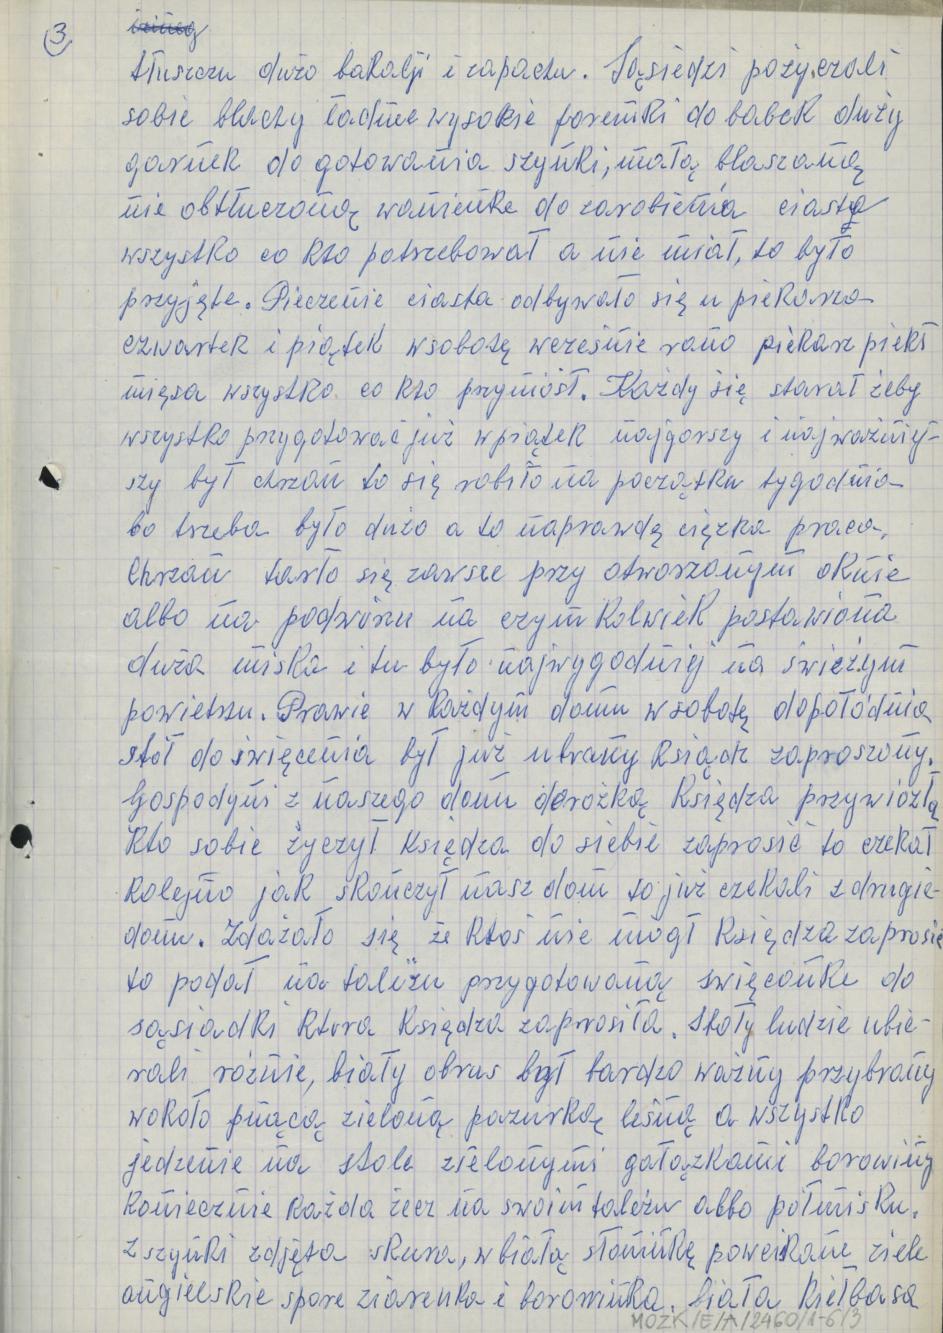 3
tłuszczu dużo bakalji i zapachu. Sąsiedzi pożyczali
sobie blachy ładne wysokie foremki do babek duży
garnek do gotowania szynki, małą blaszaną
nie obtłuczoną wanienke do zarobienia ciasta
wszystko co kto potrzebował a nie miał, to było
przyjęte. Pieczenie ciasta odbywało się u piekarza
czwartek i piątek wsobotę wcześnie rano piekarz piekł
mięsa wszystko co kto przyniósł. Każdy się starał żeby
wszystko przygotować już wpiątek najgorszy i najważniej-
szy był chrzan to się robiło na początku tygodnia
bo trzeba było dużo a to naprawdę ciężka praca.
Chrzan tarło się zawsze przy otworzonym oknie
albo na podwórzu na czym kolwiek postawiona
duża miska i tu było najwygodniej na świeżym
powietrzu. Prawie w każdym domu wsobotę dopołódnia
stół do święcenia był już ubrany Ksiądz zaproszony.
Gospodyni z naszego domu dorożką Księdza przywiozła
Kto sobie życzył Księdza do siebie zaprosić to czekał
kolejno jak skończył nasz dom to już czekali z drugie-
domu. Zdażało się że ktoś nie mógł Księdza zaprosić
to podał na tależu przygotowaną święconke do
sąsiadki ktura Księdza zaprosiła. Stoły ludzie ubie-
rali różnie, biały obrus był bardzo ważny przybrany
wokoło pnącą zieloną pazurką leśną a wszystko
jedzenie na stole zielonymi gałązkami borowiny
koniecznie każda żecz na swoim tależu albo półmisku.
Z szynki zdjęta skura, wbiałą słoninkę powciskane ziele
angielskie spore ziarenka i borowinka. Biała kiełbasa
MOZK/E/A/2460/1-6/3